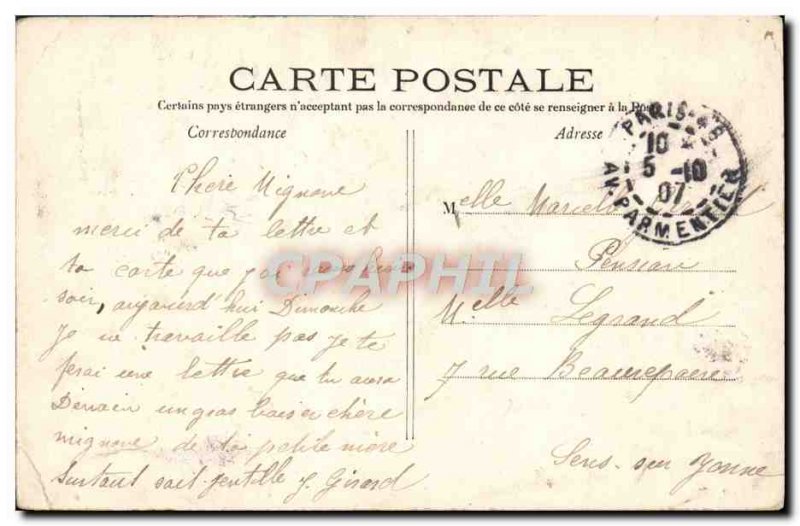 CARTE POSTALE
Certains pays étrangers n'acceptent pas la correspondance de ce côté se renseigner à la Poste
Correspondance
Chère Mignone
merci de ta lettre et
ta carte que j'ai hier
soir, aujourd'hui Dimanche
Je ne travaille pas je te
ferai une lettre que tu aura
Demain un gros baiser chère
mignone de ta petite mère
Surtout soit gentille J. Girard
Adresse
Melle Marcelle
Pension
Melle Legrand
7 rue Beaurepaire
Sens-sur Yonne
PARIS
10
5 -10
07
AV. PARMENTIER
CPAPHIL